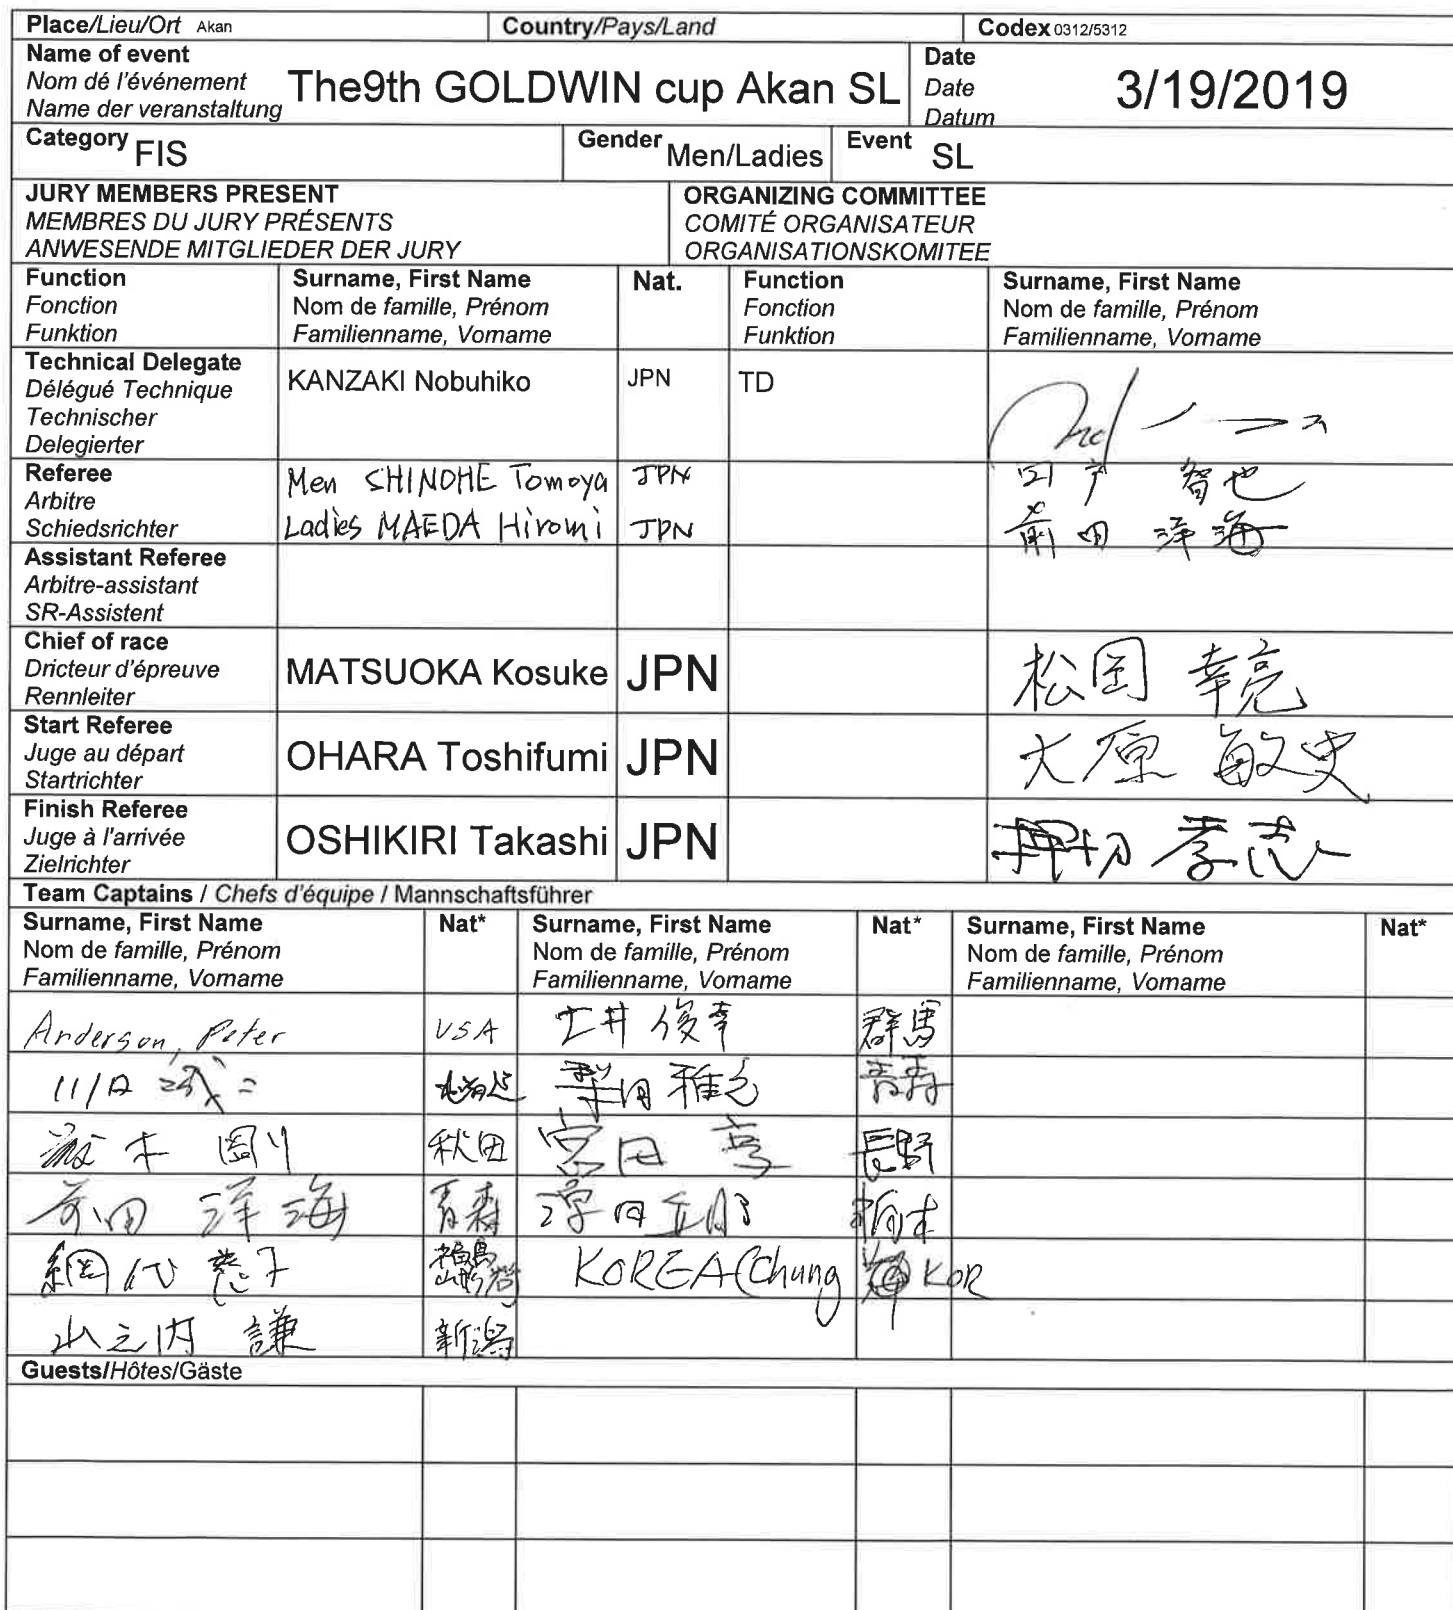 Place/Lieu/Ort Akan Country/Pays/Land Codex 0312/5312
Name of event
Nom dé l'événement
Name der veranstaltung
The9th GOLDWIN cup Akan SL
Date
Date
Datum
3/19/2019
Category FIS Gender Men/Ladies Event SL
JURY MEMBERS PRESENT
MEMBRES DU JURY PRÉSENTS
ANWESENDE MITGLIEDER DER JURY
ORGANIZING COMMITTEE
COMITÉ ORGANISATEUR
ORGANISATIONSKOMITEE
Function
Fonction
Funktion
Surname, First Name
Nom de famille, Prénom
Familienname, Vorname
Nat.
Function
Fonction
Funktion
Surname, First Name
Nom de famille, Prénom
Familienname, Vorname
Technical Delegate
Délégué Technique
Technischer
Delegierter
KANZAKI Nobuhiko JPN TD
Referee
Arbitre
Schiedsrichter
Men SHINOHE Tomoya JPN 四戸 智也
Ladies MAEDA Hiromi JPN 前田 洋海
Assistant Referee
Arbitre-assistant
SR-Assistent
Chief of race
Dricteur d'épreuve
Rennleiter
MATSUOKA Kosuke JPN 松岡 幸亮
Start Referee
Juge au départ
Startrichter
OHARA Toshifumi JPN 大原 敏史
Finish Referee
Juge à l'arrivée
Zielrichter
OSHIKIRI Takashi JPN 押切 孝志
Team Captains / Chefs d'équipe / Mannschaftsführer
Surname, First Name
Nom de famille, Prénom
Familienname, Vorname
Nat*
Surname, First Name
Nom de famille, Prénom
Familienname, Vorname
Nat*
Surname, First Name
Nom de famille, Prénom
Familienname, Vorname
Nat*
Anderson, Peter USA 七井俊幸 群馬
北海道 青森
秋田 宮田 長野
前田 洋海 青森 栃木
網代 福島 山形 KOREA(Chung KOR
山之内 謙 新潟
Guests/Hôtes/Gäste